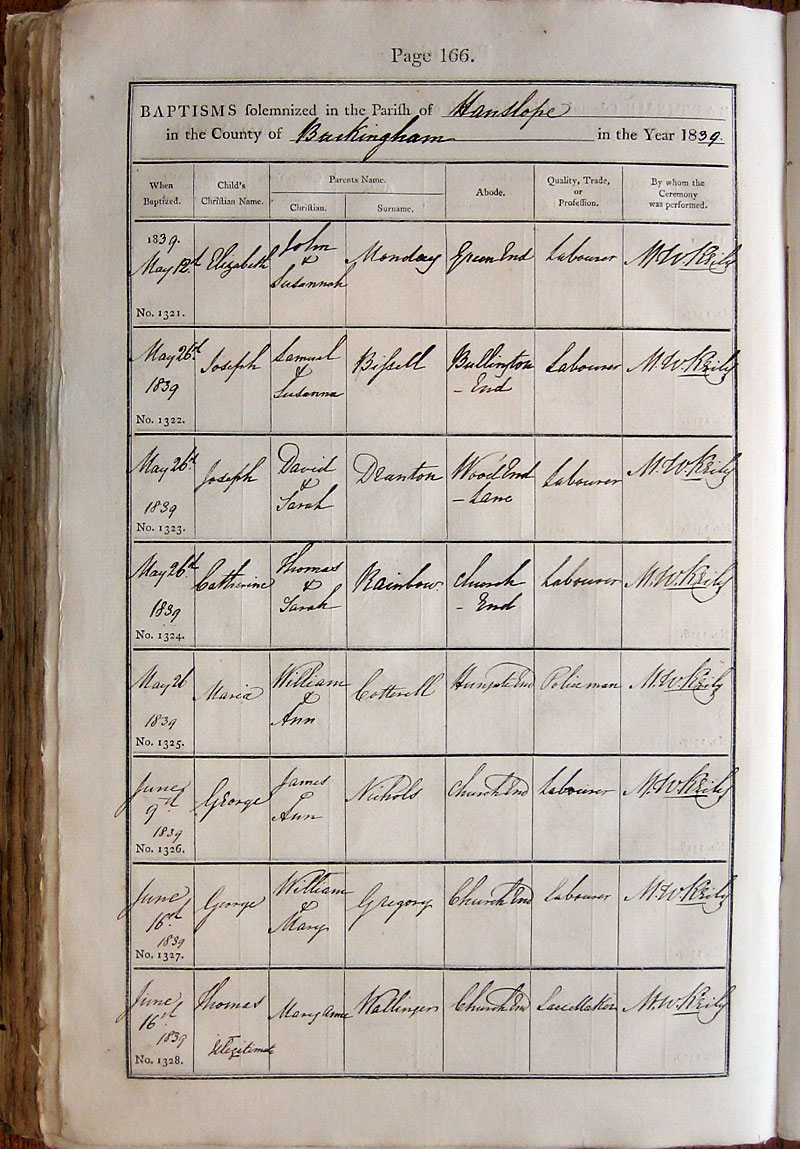 Page 166.
BAPTISMS solemnized in the Parish of Hanslope
in the County of Buckingham in the Year 1839.
When Baptized.
Child's Christian Name.
Parents Name.
Christian.
Surname.
Abode.
Quality, Trade, or Profession.
By whom the Ceremony was performed.
1839.
May 12th Elizabeth John & Susannah Monday Green End Labourer M. W. Keily
No. 1321.
May 26th 1839 Joseph Samuel & Susanna Bissell Bullington - End Labourer M. W. Keily
No. 1322.
May 26th 1839 Joseph David & Sarah Wood End - Lane Labourer M. W. Keily
No. 1323.
May 26th 1839 Catherine Thomas & Sarah Rainbow. Church - End Labourer M. W. Keily
No. 1324.
May 26 1839 Maria William & Ann Cotterell Hungate End Policeman M. W. Keily
No. 1325.
June 9th 1839 George James & Ann Nichols Church End Labourer M. W. Keily
No. 1326.
June 16th 1839 George William & Mary Gregory Church End Labourer M. W. Keily
No. 1327.
June 16th 1839 Thomas Illegitimate Mary Anne Wallinger Church End Lace Maker M. W. Keily
No. 1328.